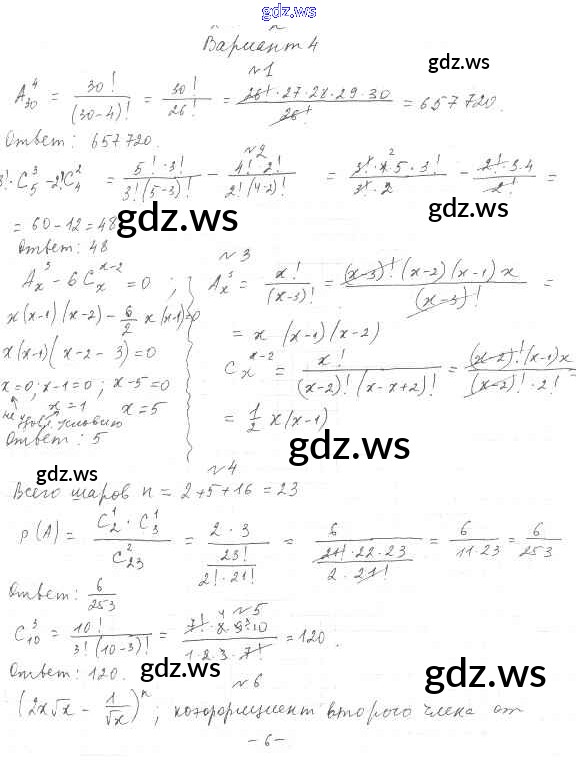 gdz.ws
Вариант 4
gdz.ws
№1
A_{30}^4 = 30!/(30-4)! = 30!/26! = 26!·27·28·29·30/26! = 657720.
Ответ: 657720.
№2
3!·C_5^3 - 2!C_4^2 = 5!·3!/3!(5-3)! - 4!·2!/2!(4-2)! = 3!·4·5·3!/3!·2 - 2!·3·4/2! =
= 60-12=48
gdz.ws
gdz.ws
Ответ: 48
№3
A_x^3 - 6C_x^{x-2} = 0 ; A_x^3 = x!/(x-3)! = (x-3)!(x-2)(x-1)x/(x-3)! =
x(x-1)(x-2) - 6/2 x(x-1)=0
= x(x-1)(x-2)
x(x-1)(x-2-3)=0
C_x^{x-2} = x!/(x-2)!(x-x+2)! = (x-2)!(x-1)x/(x-2)!·2! =
x=0; x-1=0; x-5=0
x=1 x=5
не удовл. условию
= 1/2 x(x-1)
Ответ: 5
gdz.ws
gdz.ws
№4
Всего шаров n = 2+5+16=23
p(A) = C_2^1·C_3^1/C_{23}^2 = 2·3/(23!/2!·21!) = 6/(21!·22·23/2·21!) = 6/11·23 = 6/253
Ответ: 6/253
№5
C_{10}^3 = 10!/3!(10-3)! = 7!·8·9·10/1·2·3·7! = 120.
Ответ: 120.
gdz.ws
gdz.ws
№6
(2x√x - 1/√x)^n; коэффициент второго члена от
-6-
gdz.ws